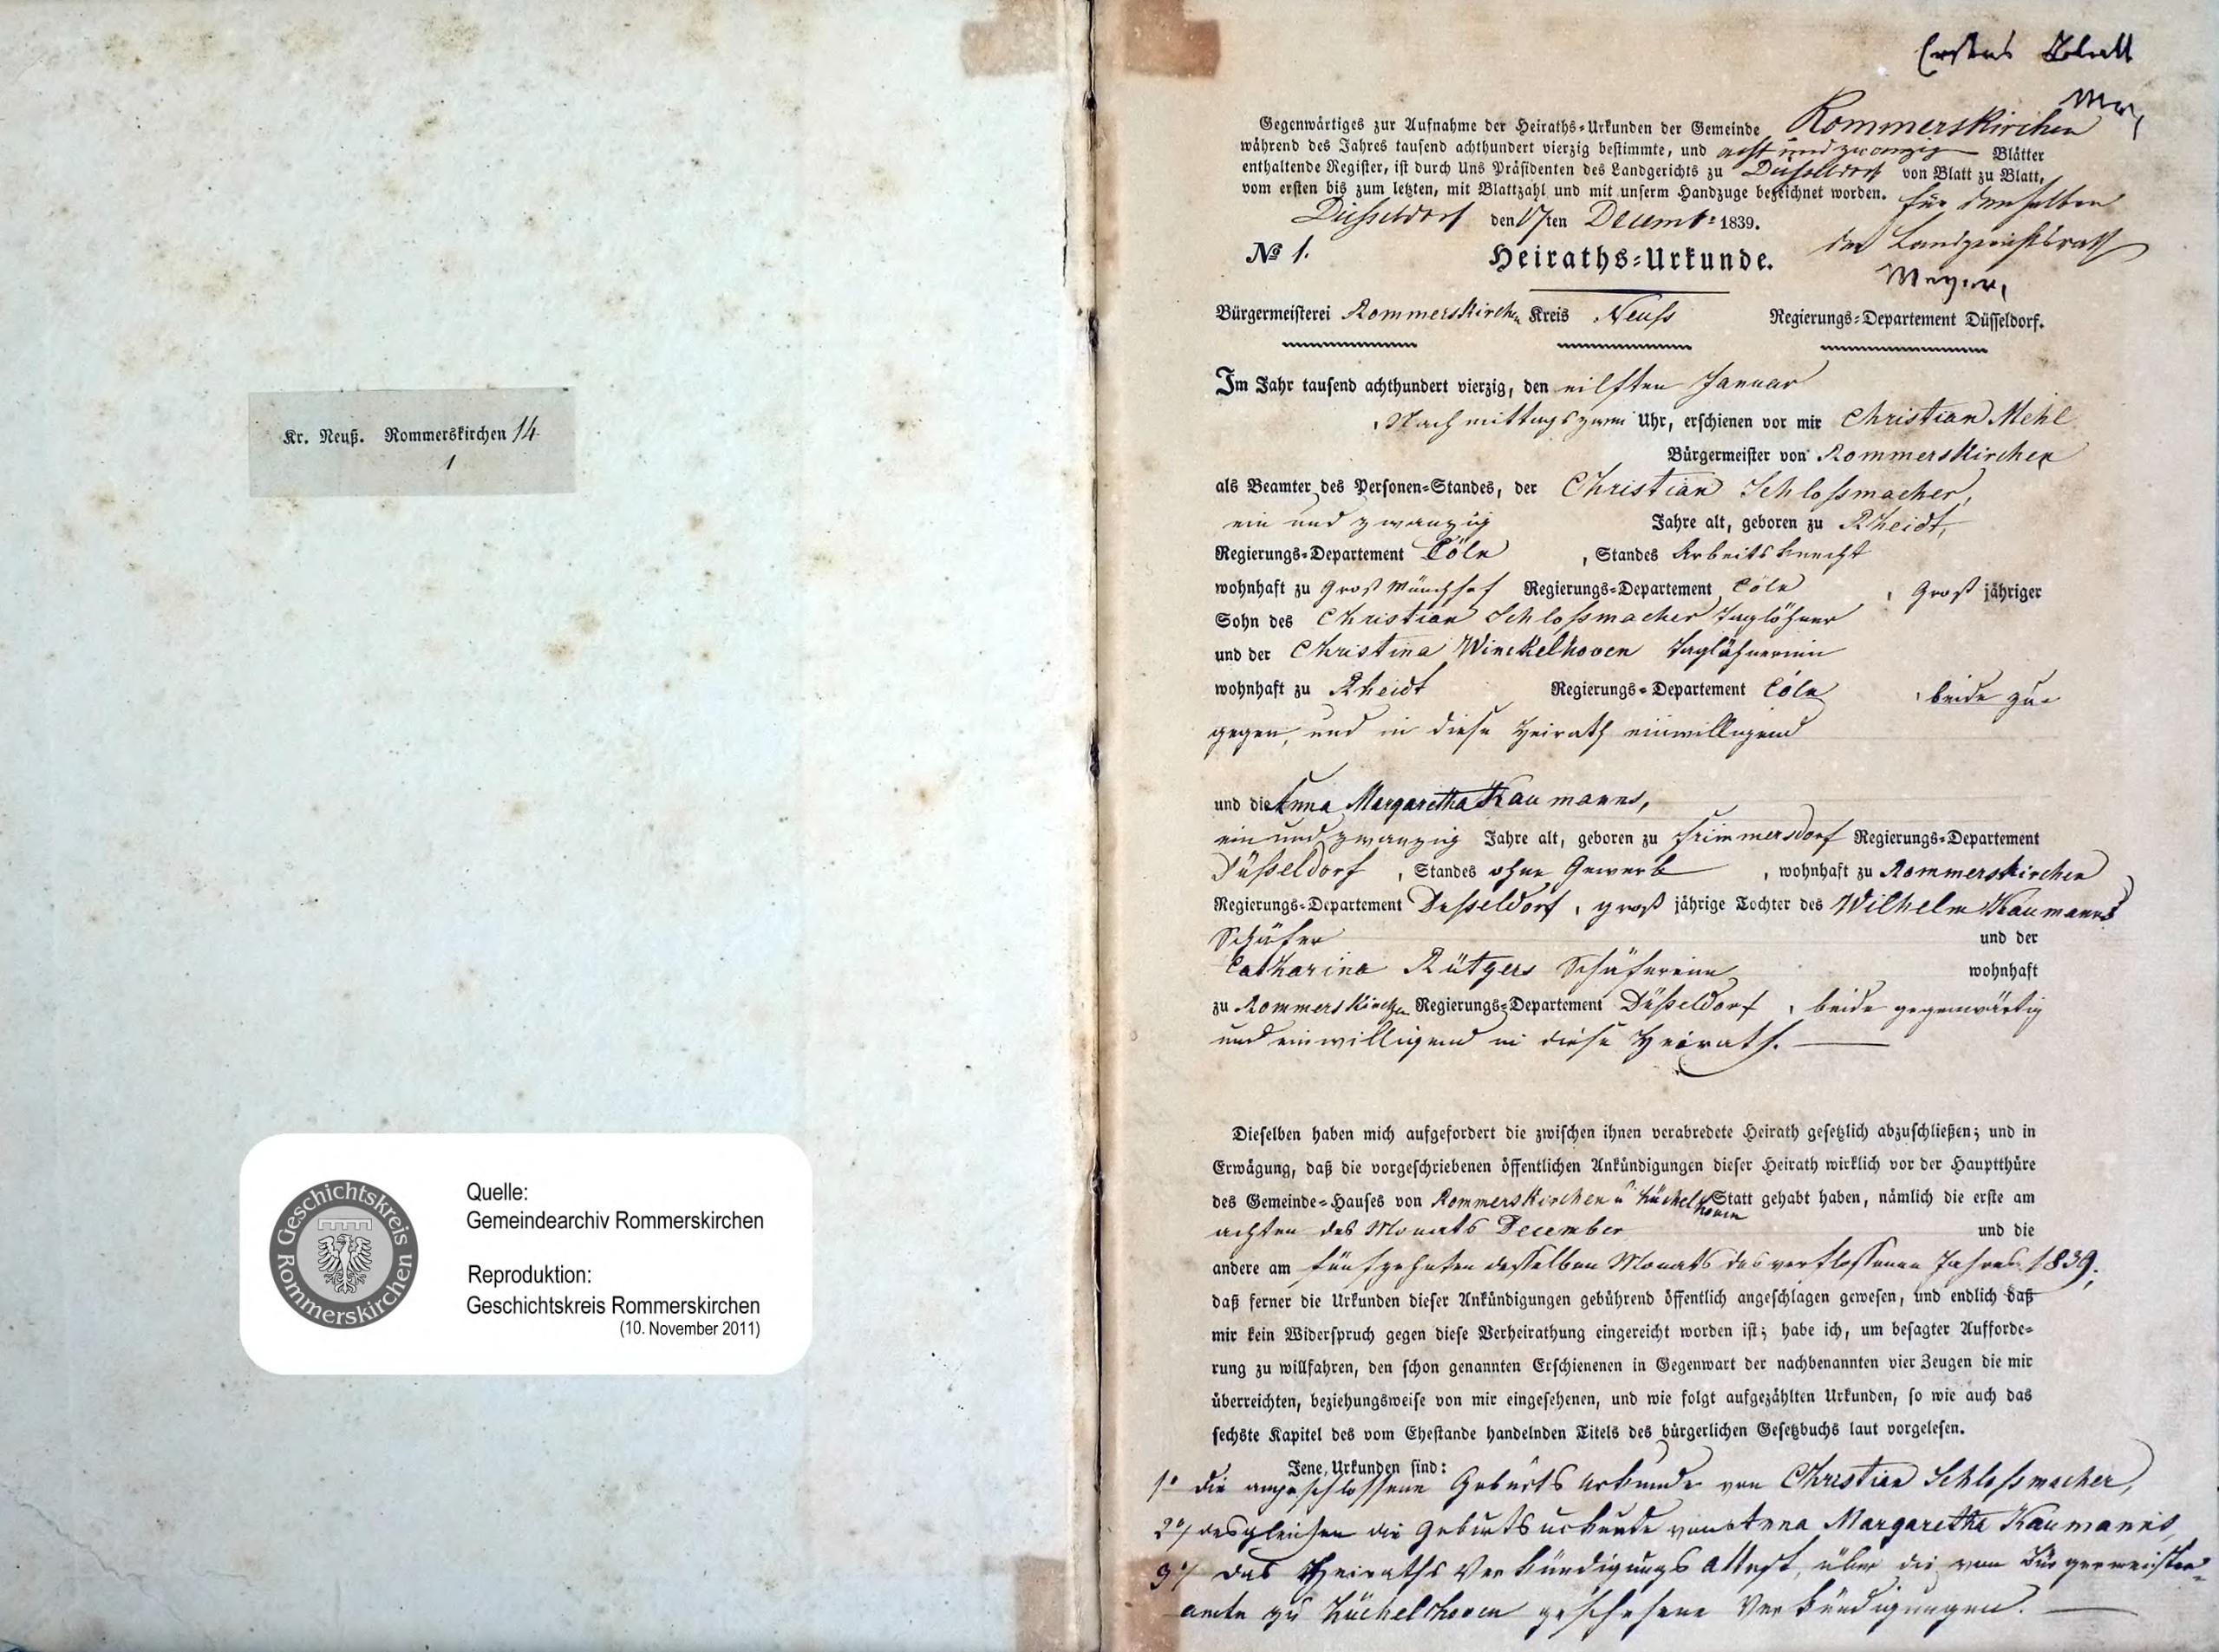 Kr. Neuß. Rommerskirchen 14
1
GESCHICHTSKREIS ROMMERSKIRCHEN
Quelle:
Gemeindearchiv Rommerskirchen
Reproduktion:
Geschichtskreis Rommerskirchen
(10. November 2011)
Erstes Blatt
Gegenwärtiges zur Aufnahme der Heiraths-Urkunden der Gemeinde Rommerskirchen
während des Jahres tausend achthundert vierzig bestimmte, und acht und zwanzig Blätter
enthaltende Register, ist durch Uns Präsidenten des Landgerichts zu Düsseldorf von Blatt zu Blatt,
vom ersten bis zum letzten, mit Blattzahl und mit unserm Handzuge bezeichnet worden. für denselben
Düsseldorf den 17ten Decemb: 1839.
der Landgerichtsrath
№ 1. Heiraths-Urkunde.
Meyer,
Bürgermeisterei Rommerskirchen Kreis Neuss Regierungs-Departement Düsseldorf.
Im Jahr tausend achthundert vierzig, den eilften Januar
, Nachmittags zwei Uhr, erschienen vor mir Christian Mehl
Bürgermeister von Rommerskirchen
als Beamter des Personen-Standes, der Christian Schlossmacher,
ein und zwanzig Jahre alt, geboren zu Rheidt,
Regierungs-Departement Cöln , Standes Arbeitsknecht
wohnhaft zu Groß Mönchhof Regierungs-Departement Cöln , Groß jähriger
Sohn des Christian Schlossmacher Taglöhner
und der Christina Winckelhoven Taglöhnerinn
wohnhaft zu Rheidt Regierungs-Departement Cöln , beide zu-
gegen, und in diese Heirath einwilligend
und die Anna Margaretha Kaumanns,
ein und zwanzig Jahre alt, geboren zu Frimmersdorf Regierungs-Departement
Düsseldorf , Standes ohne Gewerb , wohnhaft zu Rommerskirchen
Regierungs-Departement Düsseldorf , groß jährige Tochter des Wilhelm Kaumanns
Schäfer und der
Catharina Rütgers Schäferinn wohnhaft
zu Rommerskirchen Regierungs-Departement Düsseldorf , beide gegenwärtig
und einwilligend in diese Heirath.
Dieselben haben mich aufgefordert die zwischen ihnen verabredete Heirath gesetzlich abzuschließen; und in
Erwägung, daß die vorgeschriebenen öffentlichen Ankündigungen dieser Heirath wirklich vor der Hauptthüre
des Gemeinde-Hauses von Rommerskirchen u Hüchelhoven Statt gehabt haben, nämlich die erste am
achten des Monats December und die
andere am fünfzehnten desselben Monats des verflossenen Jahres 1839;
daß ferner die Urkunden dieser Ankündigungen gebührend öffentlich angeschlagen gewesen, und endlich daß
mir kein Widerspruch gegen diese Verheirathung eingereicht worden ist; habe ich, um besagter Aufforde-
rung zu willfahren, den schon genannten Erschienenen in Gegenwart der nachbenannten vier Zeugen die mir
überreichten, beziehungsweise von mir eingesehenen, und wie folgt aufgezählten Urkunden, so wie auch das
sechste Kapitel des vom Ehestande handelnden Titels des bürgerlichen Gesetzbuchs laut vorgelesen.
Jene Urkunden sind:
1° die angeschlossene Geburts Urkunde von Christian Schlossmacher,
2°/ desgleichen die Geburtsurkunde von Anna Margaretha Kaumanns,
3°/ das Heiraths Verkündigungs Attest, über die vom Bürgermeister-
amte zu Hüchelhoven geschehene Verkündigungen.